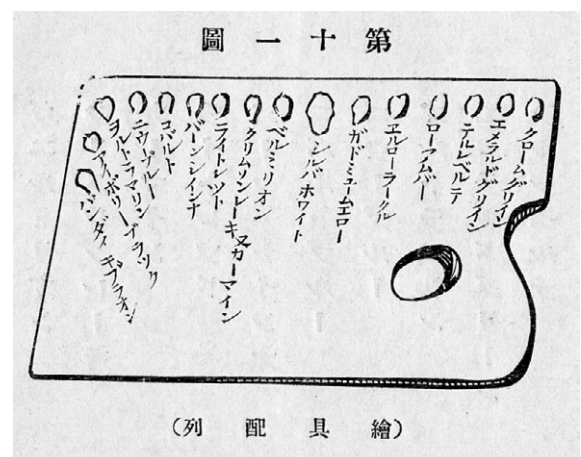 第十一圖
クロームグリイン
エメラルドグリイン
テルレベルテ
ローアムバー
ヱルローヲークル
ガドミュームエロー
シルバホワイト
ベルミリオン
クリムソンレーキ又カーマイン
ライトレツト
バーンシインナ
コバルト
ニウブルー
ヲルトラマリン
アイボリーブラック
バンダイキブラオン
(繪具配列)